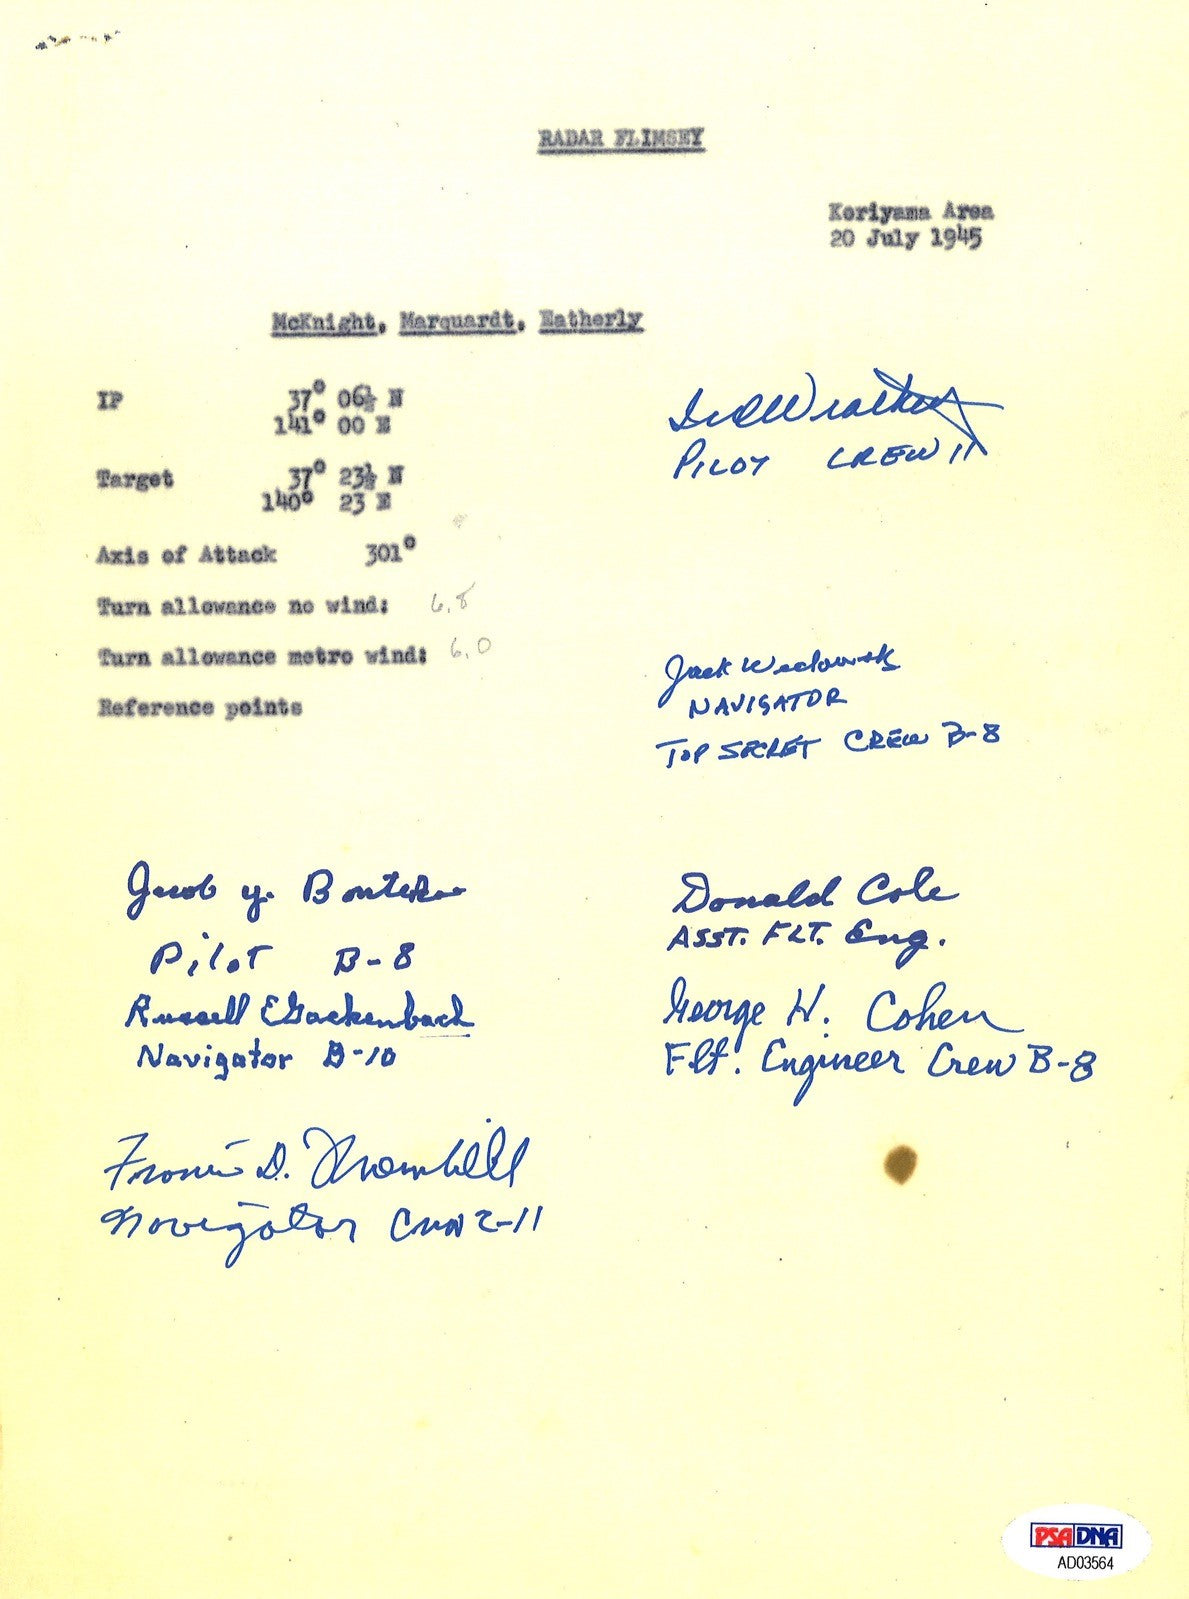 RADAR FLIMSEY
Koriyama Area
20 July 1945
McKnight, Marquardt, Eatherly
IP 37° 06½ N
141° 00 E
Target 37° 23½ N
140° 23 E
Axis of Attack 301°
Turn allowance no wind: 6.8
Turn allowance metro wind: 6.0
Reference points
PILOT CREW 11
Jack
NAVIGATOR
TOP SECRET CREW B-8
Jacob Y. Bontekoe
Pilot B-8
Russell E Gackenbach
Navigator B-10
Donald Cole
ASST. FLT. Eng.
George H. Cohen
Flt. Engineer Crew B-8
Francis D. Thornhill
Navigator Crew C-11
PSA DNA
AD03564